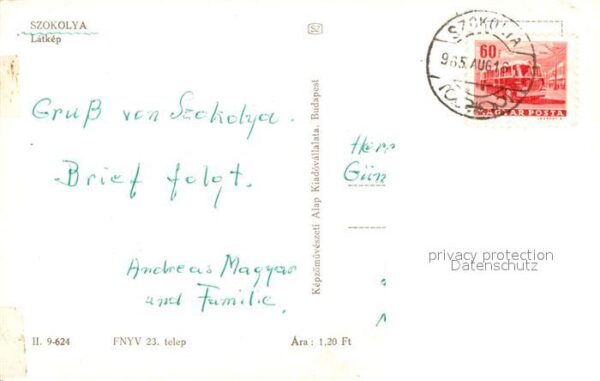 SZOKOLYA
Látkép
SZOKOLYA
60f
965.AUG.16
MAGYAR POSTA
Gruß von Szokolya.
Brief folgt.
Andreas Magyar
und Familie.
Képzőművészeti Alap Kiadóvállalata, Budapest
Herr
Gün
privacy protection
Datenschutz
II. 9-624 FNYV 23. telep Ára: 1,20 Ft